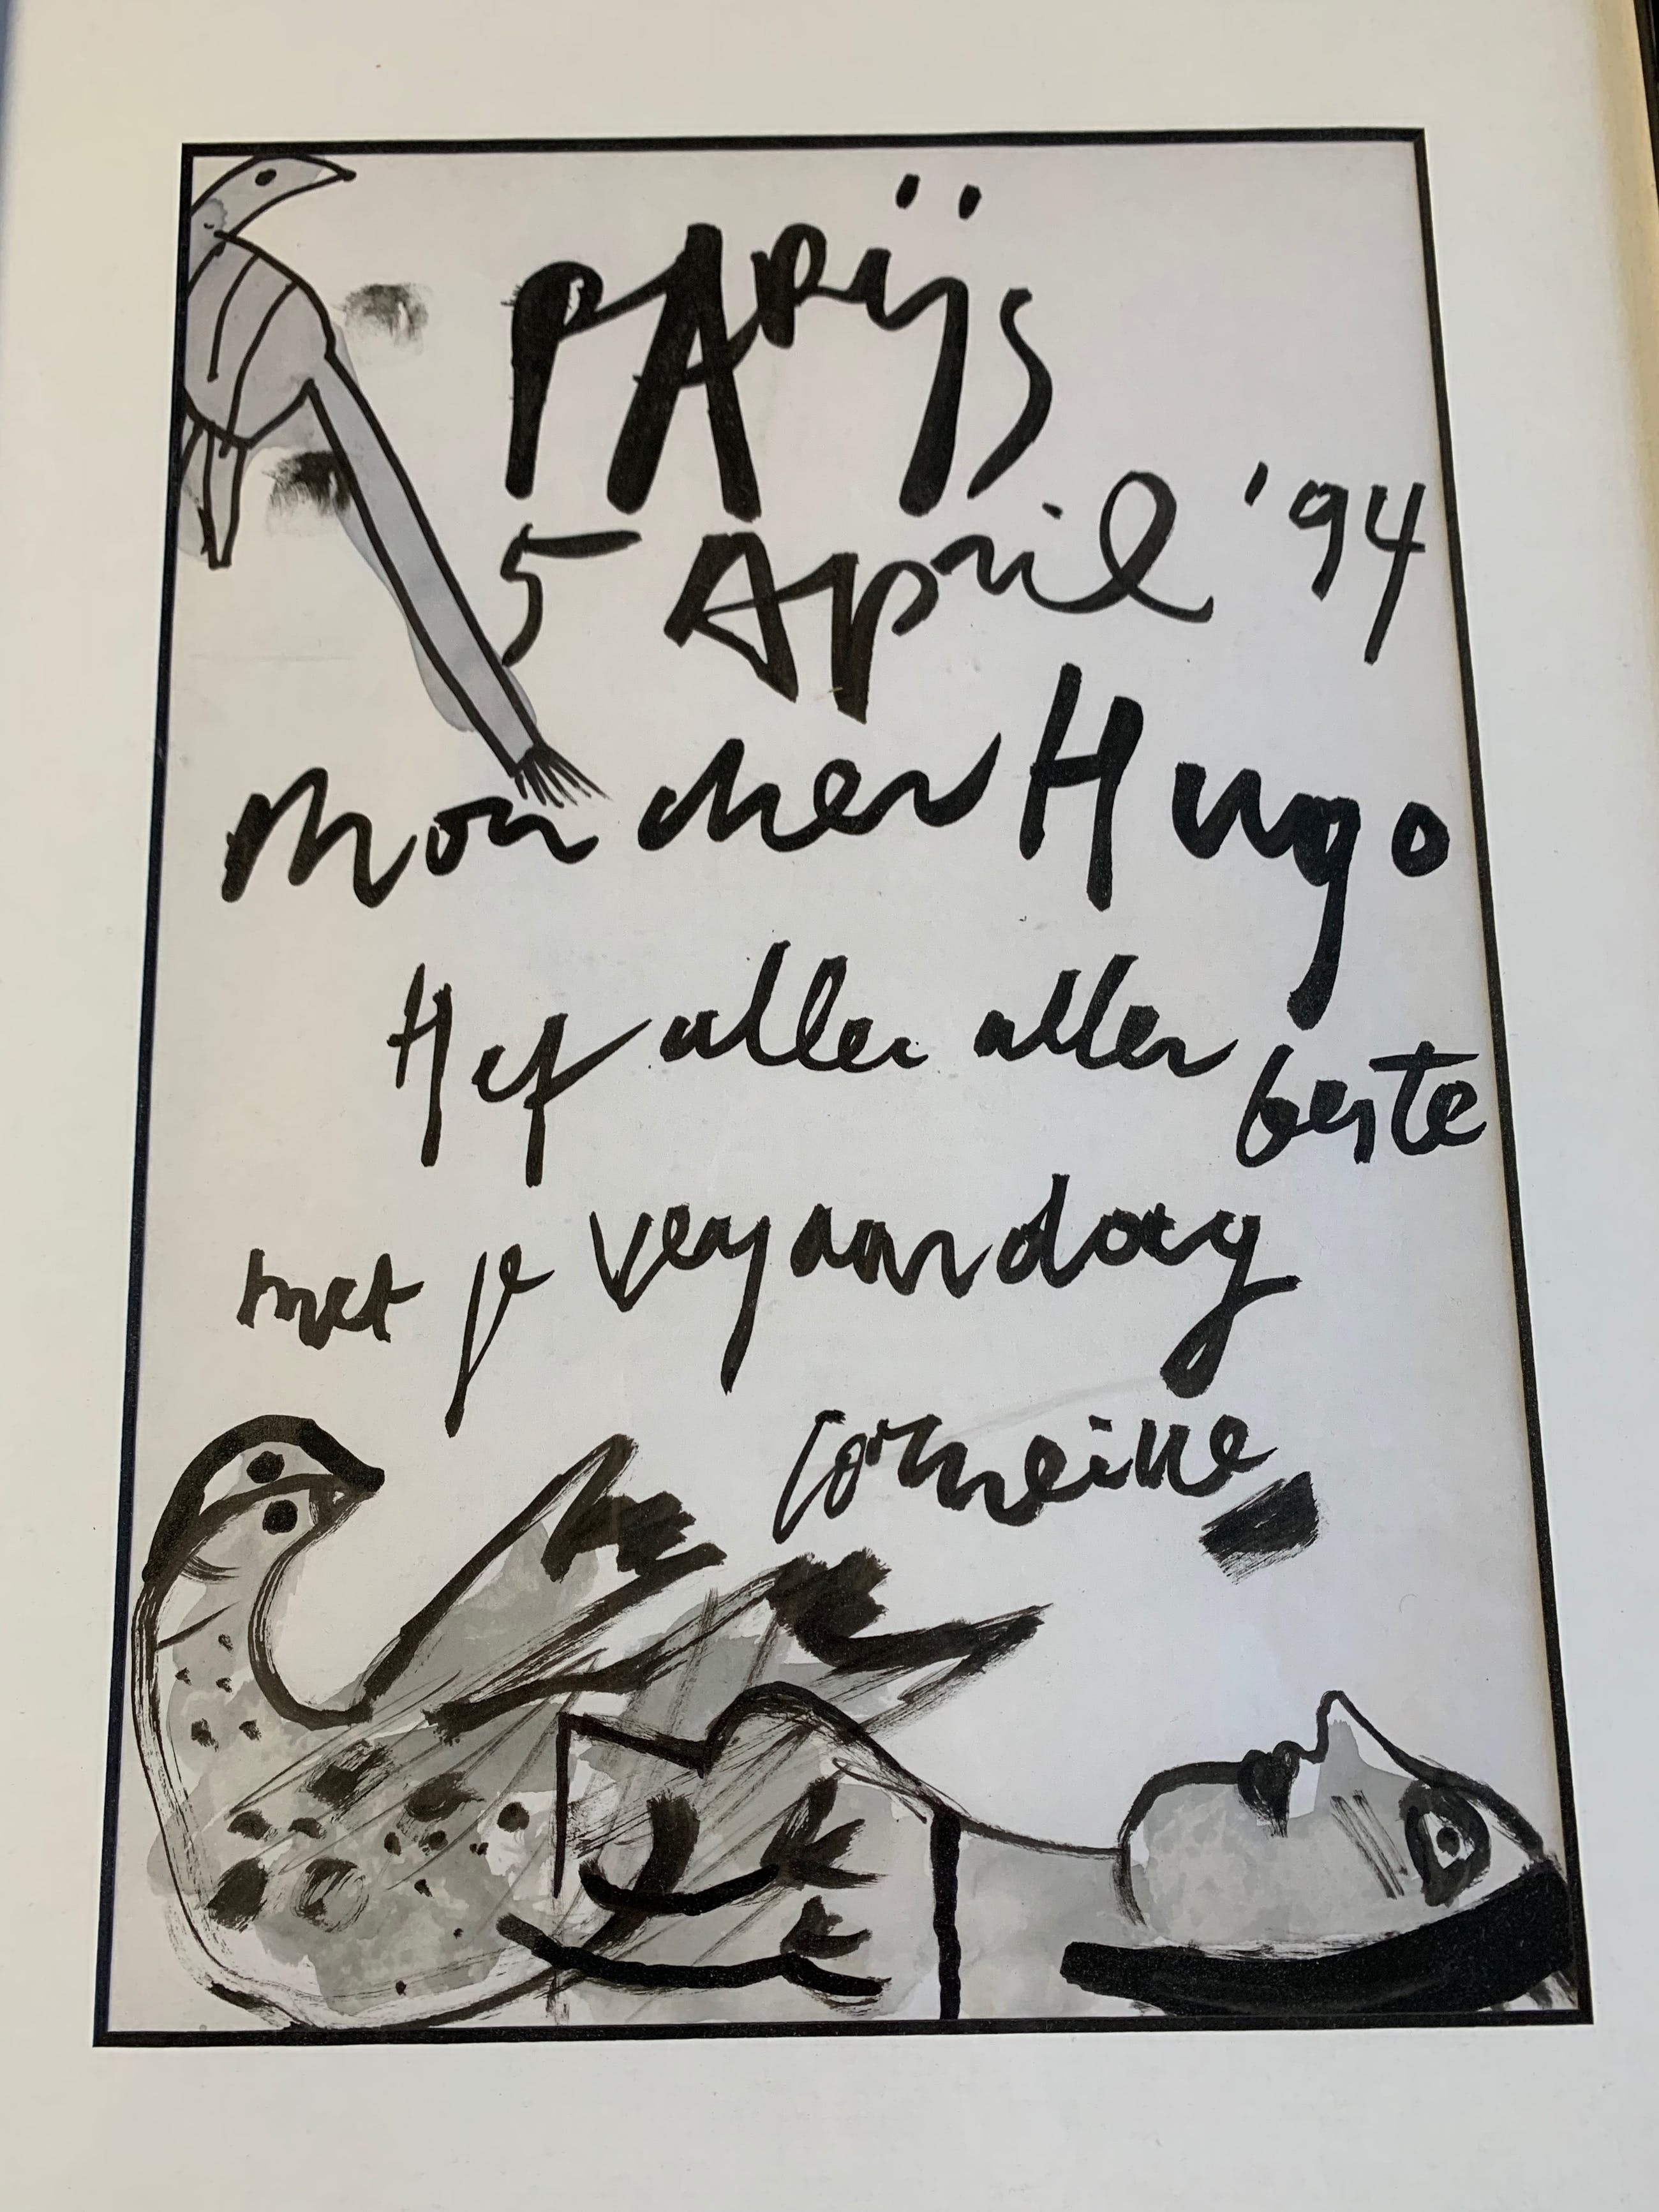 PARijs
5 April '94
Mon cher Hugo
Het aller aller
beste
met je verjaardag
Corneille